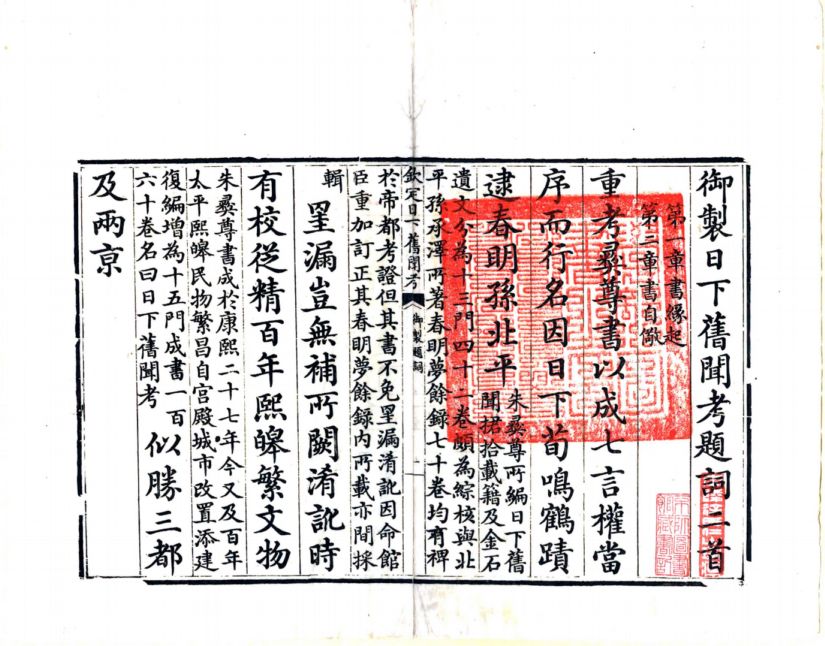 御製日下舊聞考題詞二首
第一章書緣起
第二章書自儆
重考彝尊書以成七言權當
序而行名因日下荀鳴鶴蹟
逮春明孫北平
朱彝尊所編日下舊
聞捃拾載籍及金石
遺文分為十三門四十二卷頗為綜核與北
平孫承澤所著春明夢餘錄七十卷均有裨
欽定日下舊聞考
御製題詞
一
於帝都考證但其書不免罣漏淆訛因命館
臣重加訂正其春明夢餘錄內所載亦間採
輯
罣漏豈無補所闕淆訛時
有校從精百年熙皞繁文物
朱彝尊書成於康熙二十七年今又及百年
太平熙皞民物繁昌自宮殿城市改置添建
復編增為十五門成書一百
六十卷名曰日下舊聞考
似勝三都
及兩亰